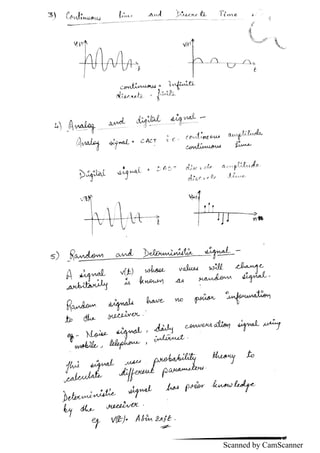 3) Continuous time and Discrete Time
V(t) V(t)
t t
continuous - Infinite
discrete - finite
4) Analog and digital signal -
Analog signal - CACT i.e. continuous amplitude
continuous time
Digital signal - DADT discrete amplitude
discrete time
V(t) V(n)
t n
5) Random and Deterministic signal -
A signal v(t) whose values will change
arbitarily is known as random signal.
Random signals have no prior information
to the receiver.
eg - Noise signal, daily conversation signal using
mobile, telephone, internet.
This signal uses probability theory to
calculate different parameters
Deterministic signal has prior knowledge
by the receiver.
eg V(t) = A sin 2πft.
Scanned by CamScanner